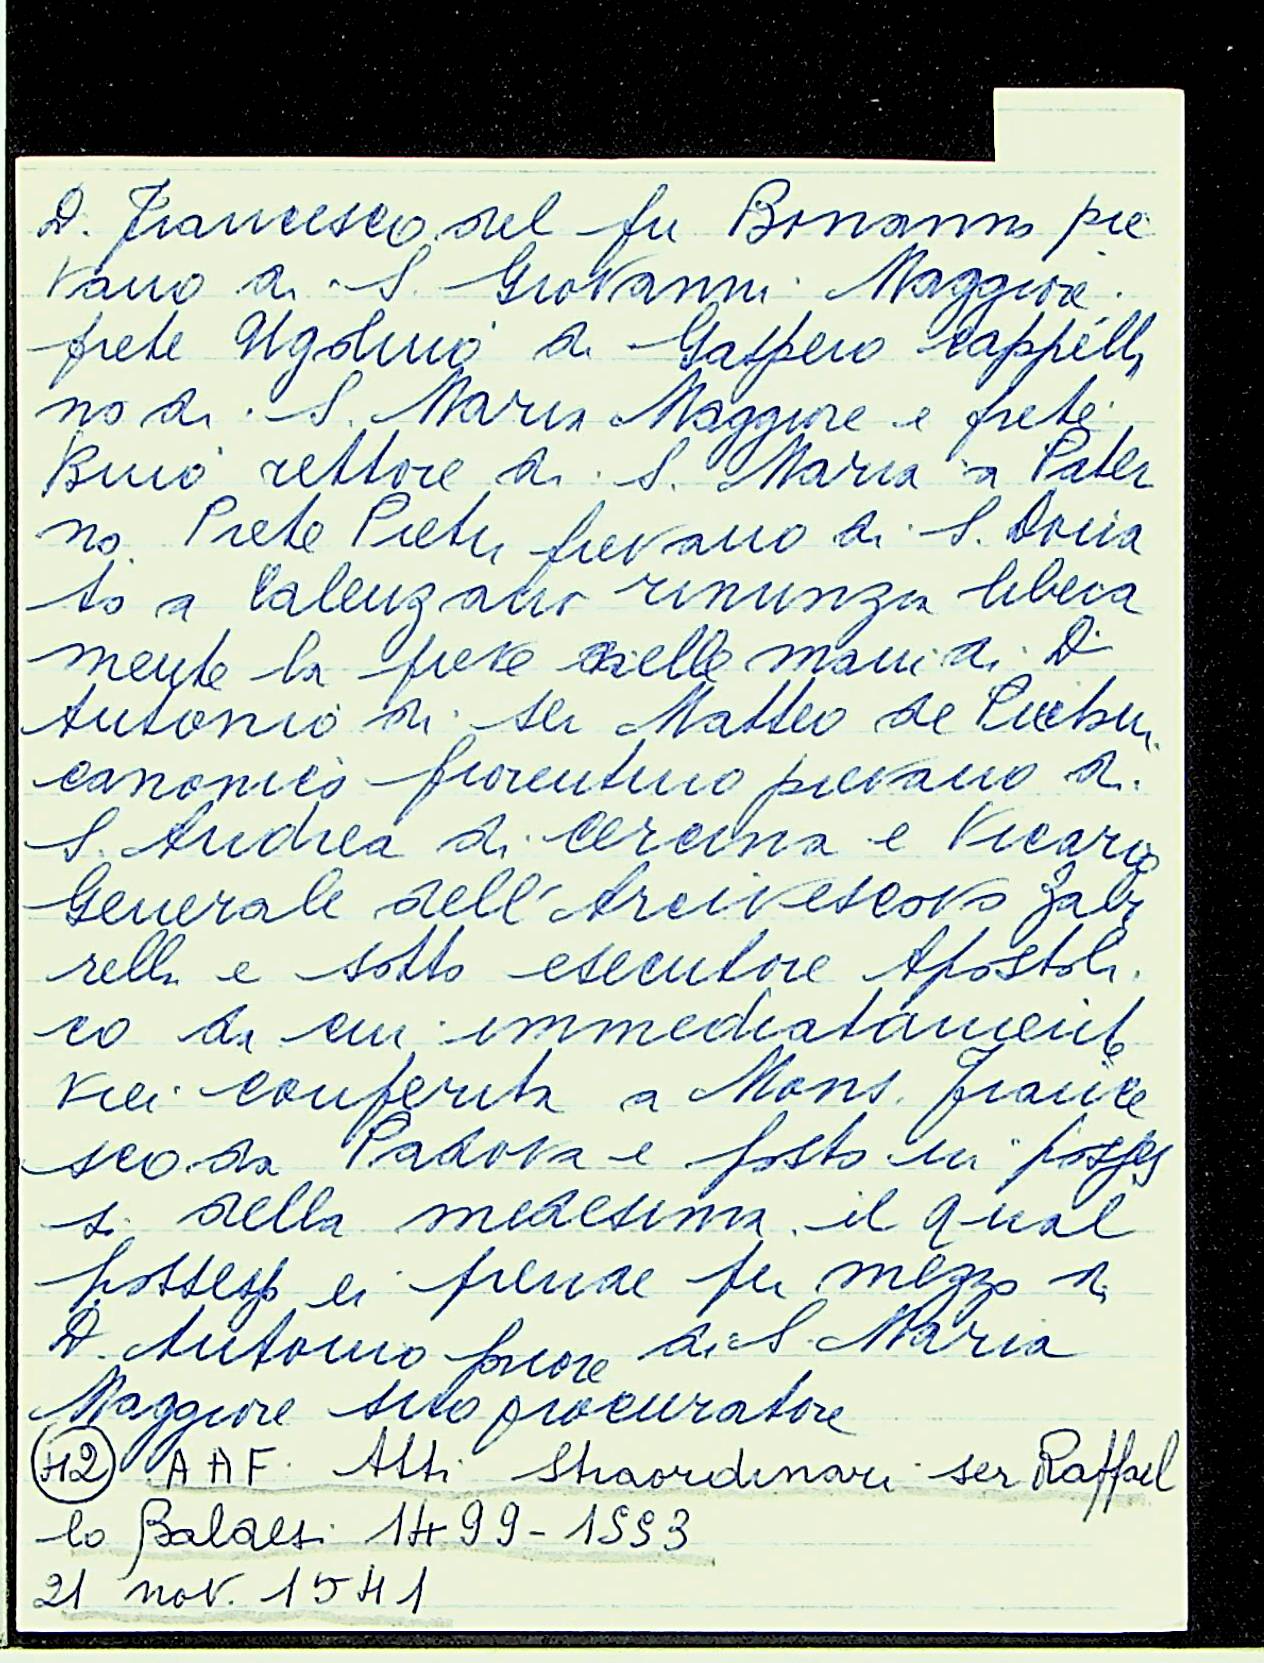 D. Francesco del fu Bonanno pie
vano di S. Giovanni Maggiore.
prete Ugolino di Gaspero cappella
no di S. Maria Maggiore e prete
Buio rettore di S. Maria a Pater
no. Prete Pietro pievano di S. Dona
to a Calenzano rinunzia libera
mente la pieve nelle mani di D.
Antonio di ser Matteo de
canonico fiorentino pievano di
S. Andrea di Cercina e Vicario
Generale dell'Arcivescovo Zaba
rella e sotto esecutore Apostoli
co da cui immediatamente
vien conferita a Mons. France
sco da Padova e posto in posses
so della medesima il qual
possesso ei prende per mezzo di
D. Antonio priore di S. Maria
Maggiore suo procuratore
(42) AAF. Atti Straordinari ser Raffael
lo Baldesi 1499-1553
21 nov. 1541